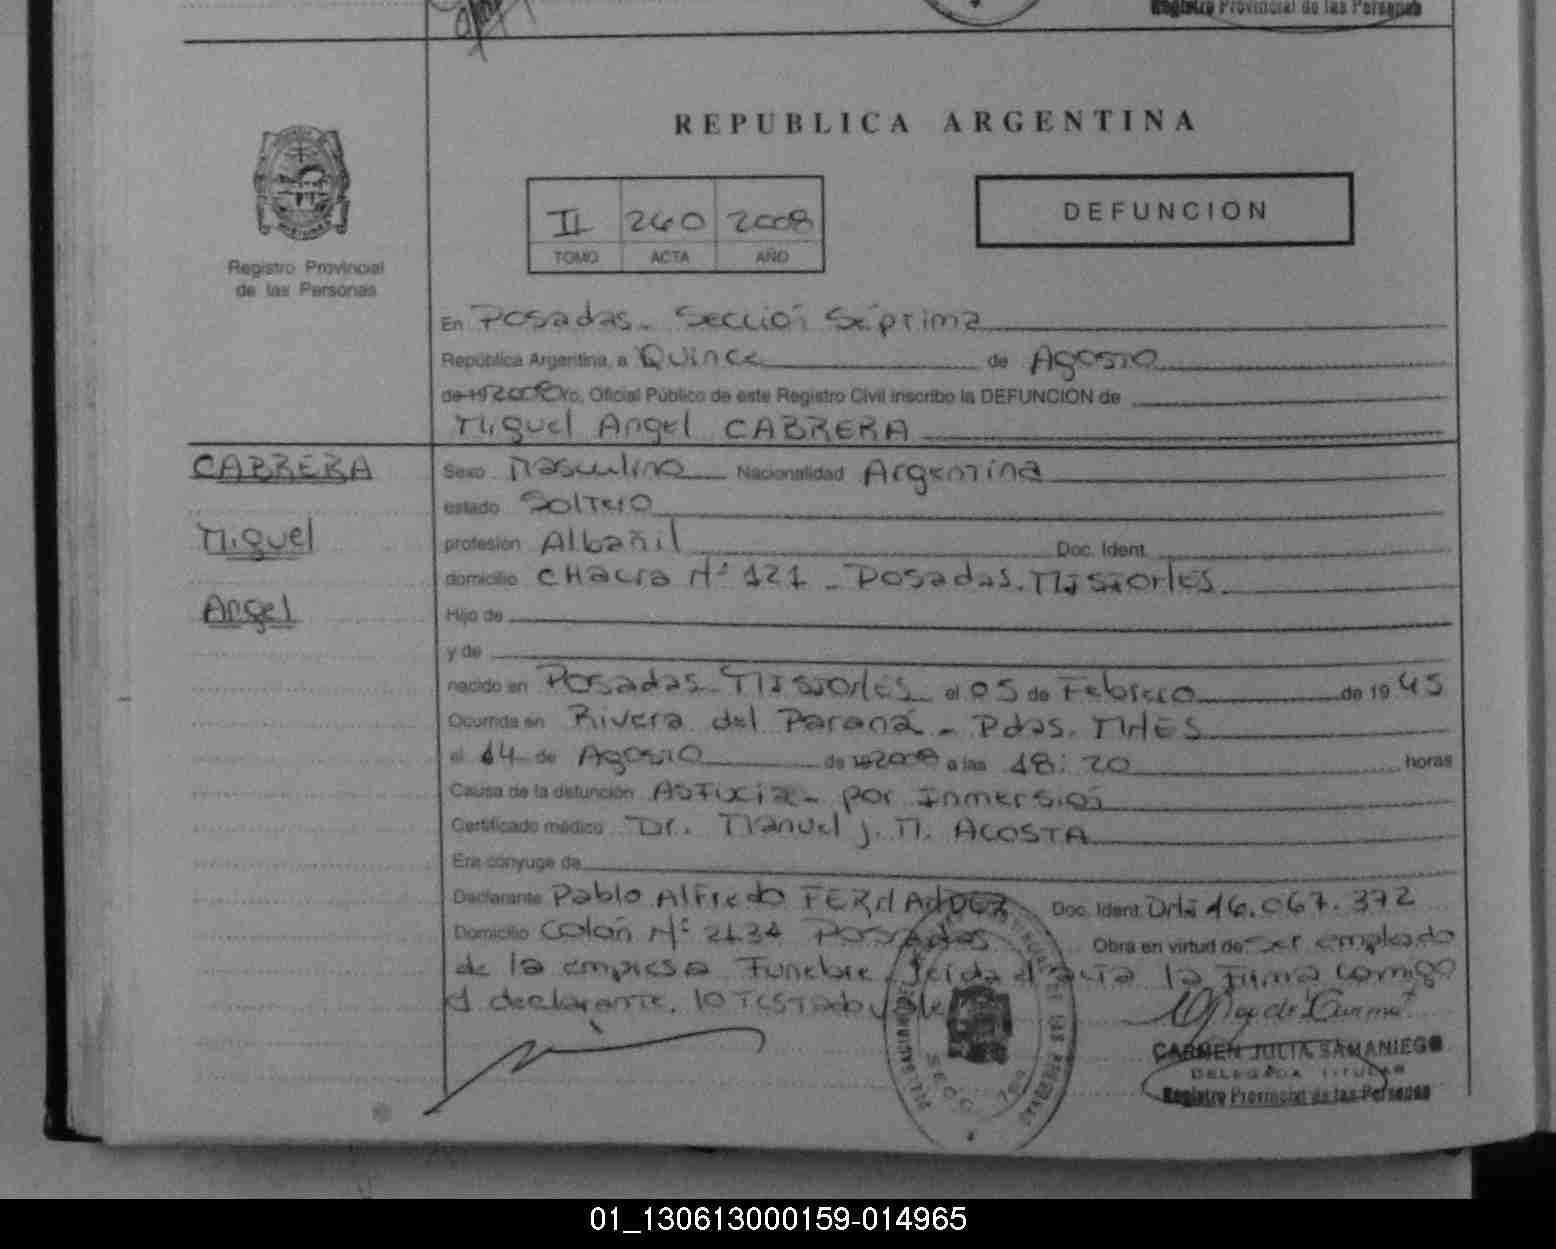 Registro Provincial de las Personas
REPUBLICA ARGENTINA
II 260 2008
TOMO ACTA AÑO
DEFUNCION
Registro Provincial
de las Personas
En Posadas - Sección Séptima
República Argentina, a Quince de Agosto
de 19 2008 Yo, Oficial Público de este Registro Civil inscribo la DEFUNCION de
Miguel Angel CABRERA
CABRERA
Miguel
Angel
Sexo Masculino Nacionalidad Argentina
estado Soltero
profesión Albañil Doc. Ident.
domicilio CHacra Nº 121 - Posadas. Misiones
Hijo de
y de
nacido en Posadas - Misiones el 05 de Febrero de 19 45
Ocurrida en Rivera del Paraná - Pdas. MNES
el 14 de Agosto de 19 2008 a las 18:20 horas
Causa de la defunción Asfixia - por Inmersión
Certificado médico Dr. Manuel J. M. ACOSTA
Era cónyuge de
Declarante Pablo Alfredo FERNANDEZ Doc. Ident. DNI 16.067.372
Domicilio Colón Nº 2134 Posadas Obra en virtud de Ser empleado
de la empresa Funebre. Leída el acta la Firma conmigo
el declarante. lo Testado vale
CARMEN JULIA SAMANIEGO
DELEGADA TITULAR
Registro Provincial de las Personas
01_130613000159-014965